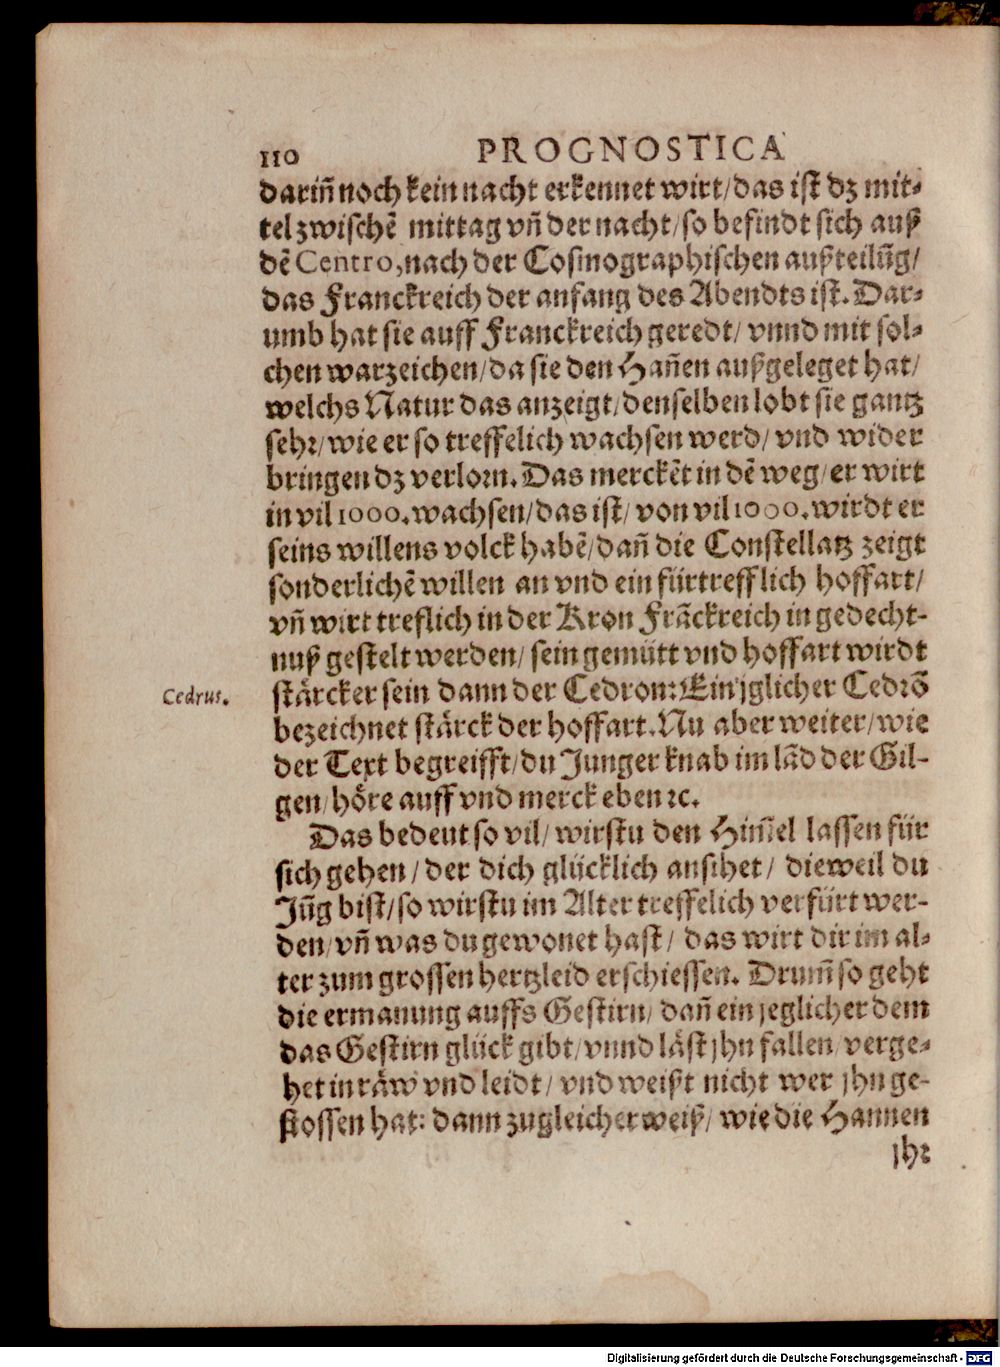 110 PROGNOSTICA
dariñ noch kein nacht erkennet wirt/das ist dz mit-
tel zwischē mittag vñ der nacht/so befindt sich auß
dē Centro,nach der Cosmographischen außteilūg/
das Franckreich der anfang des Abendts ist. Dar-
umb hat sie auff Franckreich geredt/ vnnd mit sol-
chen warzeichen/da sie den Hañen außgeleget hat/
welchs Natur das anzeigt/denselben lobt sie gantz
sehr/wie er so treffelich wachsen werd/ vnd wider
bringen dz verlorn. Das merckēt in dē weg/er wirt
in vil 1000. wachsen/das ist/ von vil 1000. wirdt er
seins willens volck habē/dañ die Constellatz zeigt
sonderlichē willen an vnd ein fürtrefflich hoffart/
vñ wirt treflich in der Kron Frāckreich in gedecht-
nuß gestelt werden/ sein gemütt vnd hoffart wirdt
Cedrus.
stärcker sein dann der Cedron: Ein jglicher Cedrō
bezeichnet stärck der hoffart. Nu aber weiter/wie
der Text begreifft/du Junger knab im lād der Gil-
gen/höre auff vnd merck eben ꝛc.
Das bedeut so vil/ wirstu den Him̃el lassen für
sich gehen/der dich glücklich ansihet/ dieweil du
Jūg bist/so wirstu im Alter treffelich verfürt wer-
den/vñ was du gewonet hast/ das wirt dir im al-
ter zum grossen hertzleid erschiessen. Drum̃ so geht
die ermanung auffs Gestirn/ dañ ein jeglicher dem
das Gestirn glück gibt/vnnd läst jhn fallen/verge-
het in räw vnd leidt/ vnd weißt nicht wer jhn ge-
stossen hat: dann zugleicher weiß/ wie die Hannen
jhr
Digitalisierung gefördert durch die Deutsche Forschungsgemeinschaft - DFG